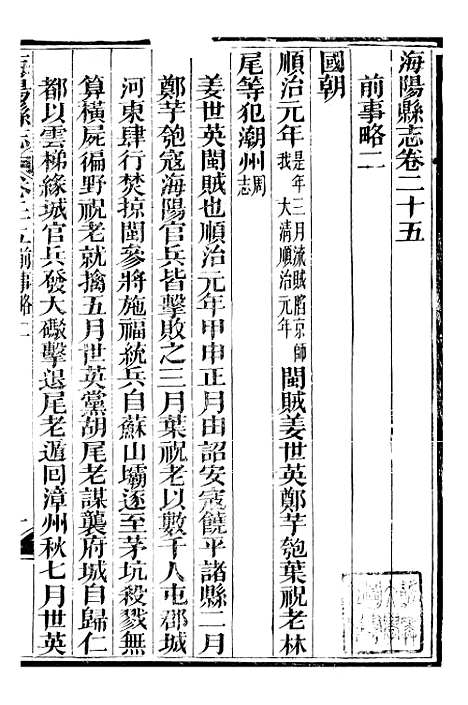 海陽縣志卷二十五
前事略二
國朝
順治元年是年三月流賊陷京師我大清順治元年閩賊姜世英鄭芋匏葉祝老林
尾等犯潮州周志
姜世英閩賊也順治元年甲申正月由詔安寇饒平諸縣二月
鄭芋匏寇海陽官兵皆擊敗之三月葉祝老以數千人屯郡城
河東肆行焚掠閩參將施福統兵自蘇山壩逐至茅坑殺戮無
算橫屍徧野祝老就擒五月世英黨胡尾老謀襲府城自歸仁
都以雲梯緣城官兵發大礮擊退尾老遁回漳州秋七月世英
海陽縣志 卷二十五前事略二 一